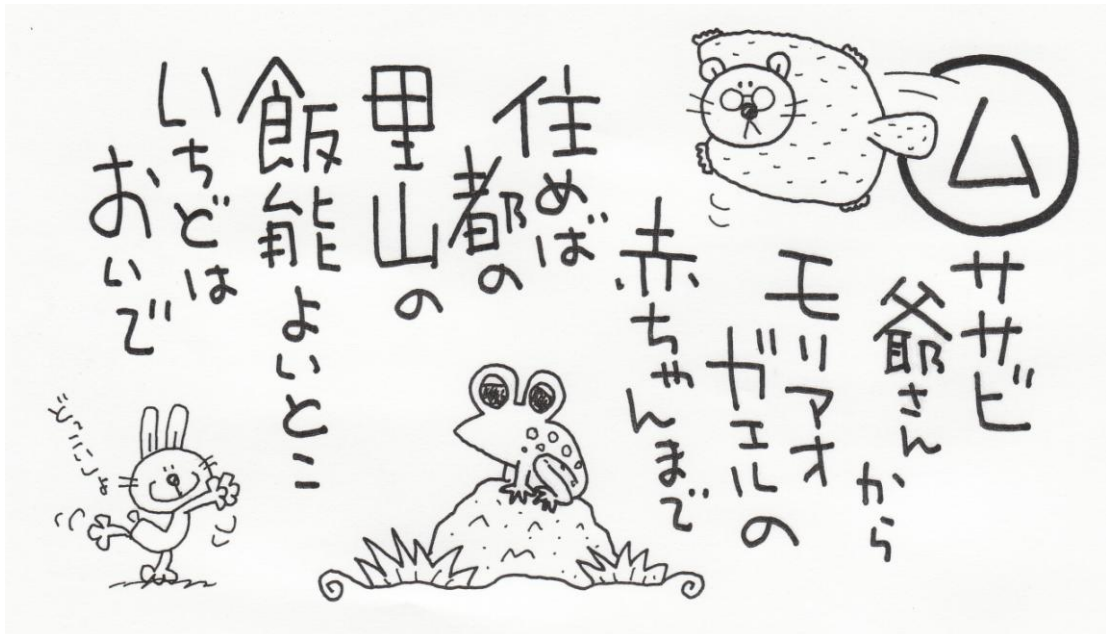 ムササビ
爺さん
から
モリアオ
ガエルの
赤ちゃんまで
住めば
都の
里山の
飯能よいとこ
いちどは
おいで
どっこいしょ